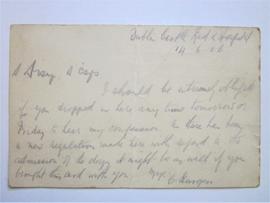 Dublin Castle Red X Hospital
14.6.16
I should be extremely obliged
if you dropped in here any time tomorrow or
Friday to hear my confession. As there has been
a new regulation made here with regard to the
admission of the clergy it might be as well if you
brought this card with you.